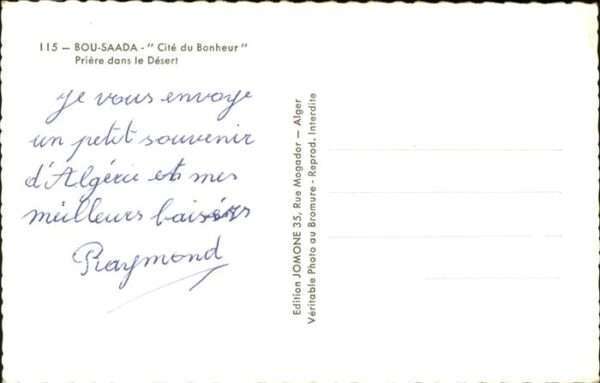 115 — BOU-SAADA - " Cité du Bonheur "
Prière dans le Désert
Je vous envoye
un petit souvenir
d'Algérie et mes
meilleurs baisers
Raymond
Edition JOMONE 35, Rue Mogador — Alger
Véritable Photo au Bromure - Reprod. Interdite